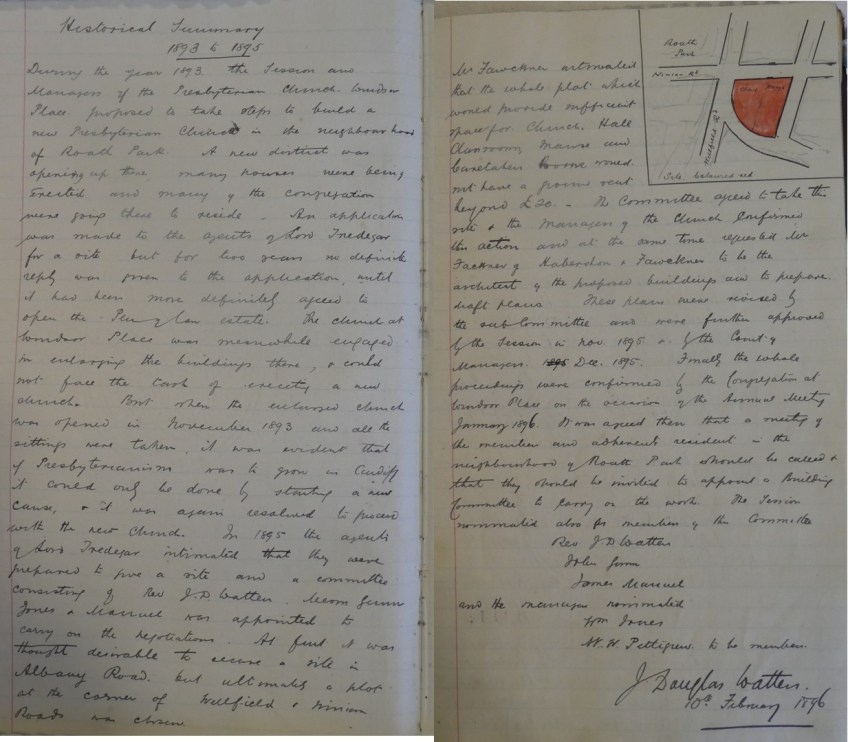 Historical Summary
1893 to 1895
During the year 1893 the Session and
Managers of the Presbyterian Church Windsor
Place proposed to take steps to build a
new Presbyterian Church in the neighbourhood
of Roath Park. A new district was
opening up there, many houses were being
erected and many of the congregation
were going there to reside. An application
was made to the agents of Lord Tredegar
for a site but for two years no definite
reply was given to the application, until
it had been more definitely agreed to
open the Pen y lan estate. The church at
Windsor Place was meanwhile engaged
in enlarging the buildings there, & could
not face the cost of erecting a new
church. But when the enlarged church
was opened in November 1893 and all the
sittings were taken, it was evident that
if Presbyterianism was to grow in Cardiff
it could only be done by starting a new
cause, & it was again resolved to proceed
with the new Church. In 1895 the agents
of Lord Tredegar intimated that they were
prepared to give a site and a committee
consisting of Rev J.D Watters, Messrs Gunn
Jones & Manuel was appointed to
carry on the negotiations. At first it was
thought desirable to secure a site in
Albany Road. but ultimately a plot
at the corner of Wellfield & Ninian
Roads was chosen.
Roath
Park
Ninian Rd
Wellfield Rd
Site coloured red
Mr Fawckner estimated
that the whole plot which
would provide sufficient
space for Church, Hall
Classrooms, Manse and
Caretakers
not have a ground rent
beyond £20. - The Committee agreed to take this
site & the Managers of the Church confirmed
this action and at the same time requested Mr
Fackner of Habershon & Fawckner to be the
architect of the proposed buildings and to prepare
draft plans. These plans were revised by
the sub Committee and were further approved
by the Session in Nov. 1895 & by the Court of
Managers 1895 Dec. 1895. Finally the whole
proceedings were confirmed by the Congregation at
Windsor Place on the occasion of the Annual Meeting
January 1896. It was agreed then that a meeting of
the members and adherents resident in the
neighbourhood of Roath Park should be called &
that they should be invited to appoint a Building
Committee to carry on the work. The Session
nominated also as members of the Committee
Rev J.D Watters
John Gunn
James Manuel
and the managers nominated
Wm Jones
W. W. Pettigrew to be members.
J. Douglas Watters.
10th February 1896